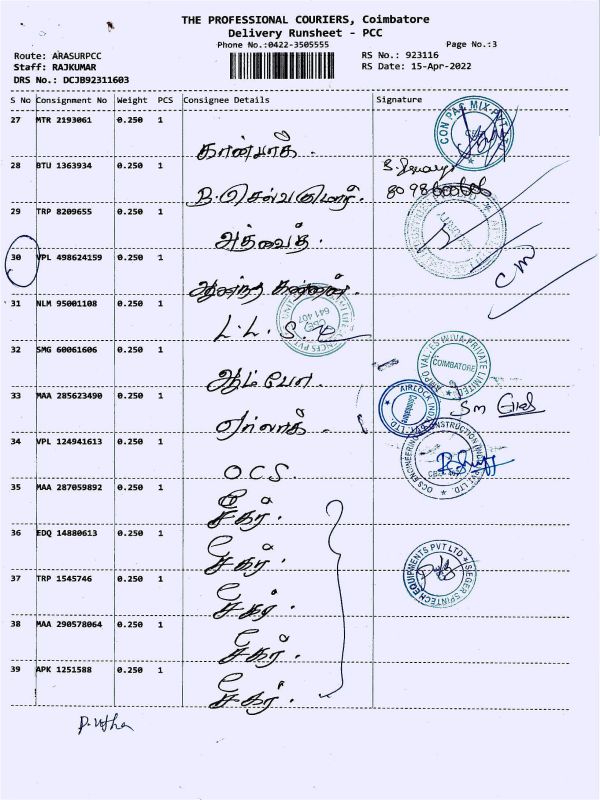 THE PROFESSIONAL COURIERS, Coimbatore
Delivery Runsheet - PCC
Phone No.:0422-3505555
Page No.:3
Route: ARASURPCC
RS No.: 923116
Staff: RAJKUMAR
RS Date: 15-Apr-2022
DRS No.: DCJB92311603
S No Consignment No Weight PCS Consignee Details Signature
27 MTR 2193061 0.250 1
CON PAC MIX
கான்பாக்
28 BTU 1363934 0.250 1
B. செல்வகுமார்.
8098
29 TRP 8209655 0.250 1
அத்வைத்
30 VPL 498624159 0.250 1
CM
31 NLM 95001108 0.250 1
641 407
L. L. S.
32 SMG 60061606 0.250 1
PRIVATE LIMITED
COIMBATORE
ஆம்போ
33 MAA 285623490 0.250 1
AIRLOCK INDIA
Coimbatore
SM
ஏர்லாக்
34 VPL 124941613 0.250 1
OCS ENGINEERING CONSTRUCTION (INDIA) PVT LTD.
OCS
35 MAA 287059892 0.250 1
சீகர்.
36 EDQ 14880613 0.250 1
சீகர்.
SIEGER SPINTECH EQUIPMENTS PVT LTD
37 TRP 1545746 0.250 1
சீகர்.
38 MAA 290578064 0.250 1
சீகர்.
39 APK 1251588 0.250 1
சீகர்.